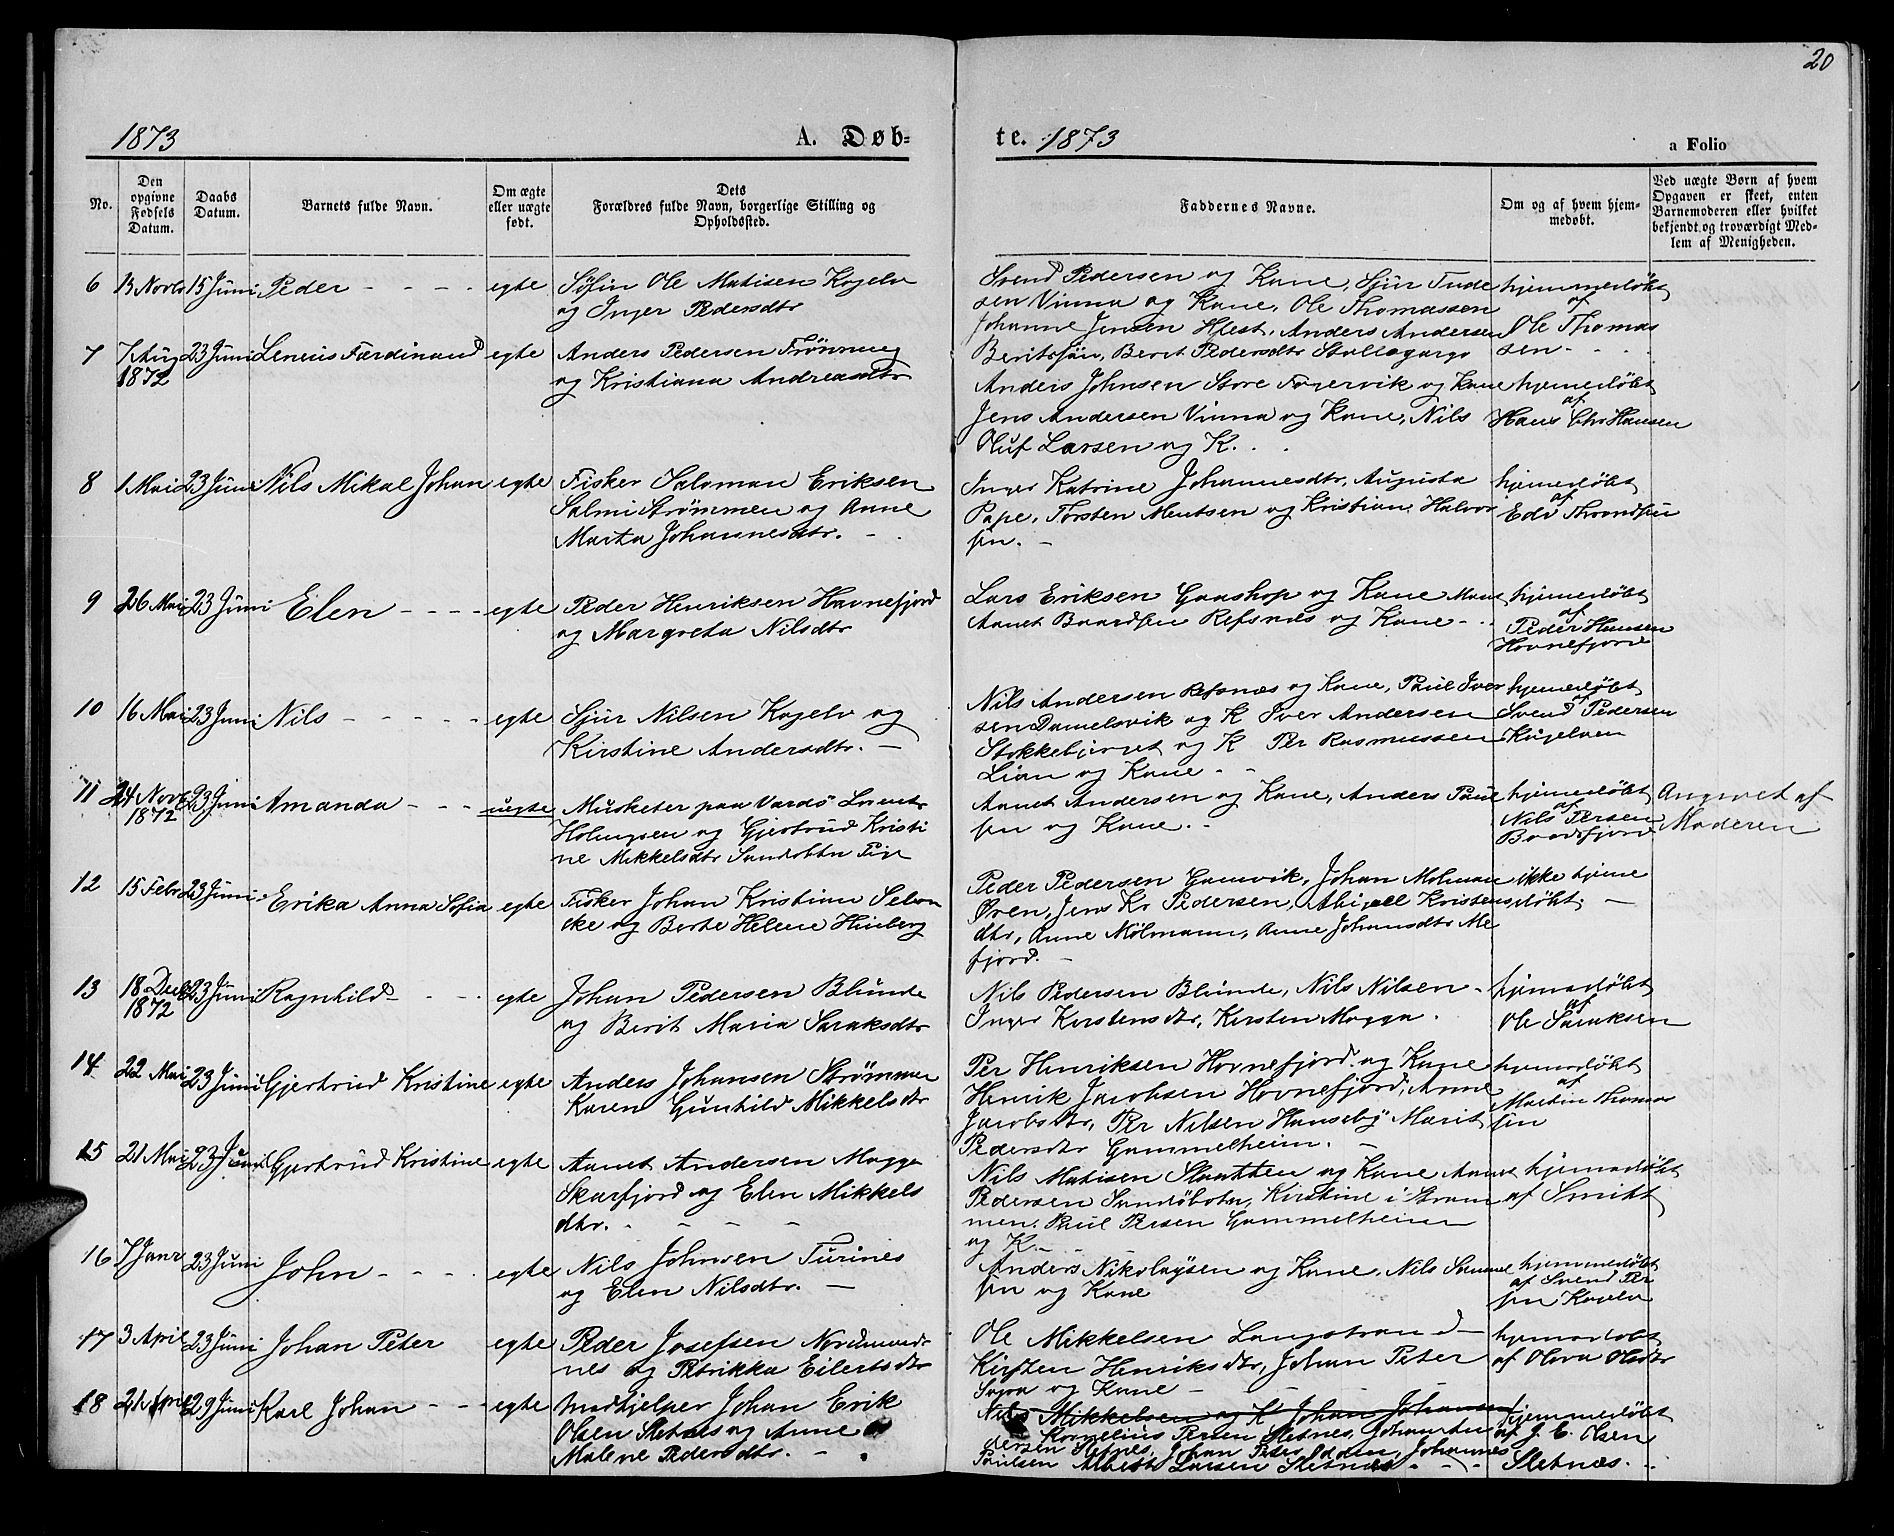 20
1873
A. Døb-
te. 1873
a Folio
No.
Den opgivne Fødsels Datum.
Daabs Datum.
Barnets fulde Navn.
Om ægte eller uægte født.
Dets Forældres fulde Navn, borgerlige Stilling og Opholdssted.
Faddernes Navne.
Om og af hvem hjemmedøbt.
Ved uægte Børn af hvem Opgaven er skeet, enten Barnemoderen eller hvilket bekjendt og troværdigt Medlem af Menigheden.
6 13 Novb 15 Juni Peder - - - - egte
Søfin Ole Matisen Kogelv
og Inger Pedersdtr
Svend Pedersen og Kone, Sjur Tude
sen Vinna og Kone, Ole Thomassen
Johanne Jensen Hlest, Anders Andersen
Beritsfjun, Berit Pedersdtr Stallogargo
hjemmedøbt
af
Ole Thomas
sen - -
7 7 Aug 1872 23 Juni Leneus Ferdinand egte
Anders Pedersen Trønning
og Kristiana Andreasdtr
Anders Johnsen Store Fogervik og Kone
Jens Andersen Vinna og Kone, Nils
Oluf Larsen og K. . .
hjemedøbt
af
Hans Chr Hansen
8 1 Mai 23 Juni Nils Mikal Johan egte
Fisker Salomon Eriksen
Salmi Strømmen og Anne
Marta Johannesdtr. -
Inger Katrine Johannesdtr, Augusta
Pape, Torsten Mentsen og Kristian Halvor
sen. -
hjemedøbt
af
Edv Throndsen
9 26 Mai 23 Juni Elen - - - - egte
Peder Henriksen Havnefjord
og Margreta Nilsdtr
Lars Eriksen Gaashop og Kone
Aanet Baardsen Refsnes og Kone - -
hjemedøbt
af
Peder Hansen
Hovnefjord
10 16 Mai 23 Juni Nils - - - - - egte
Sjur Nilsen Kogelv og
Kirstine Andersdtr. -
Nils Andersen Refsnes og Kone, Paul Iver
sen Danielsvik og K Iver Andersen
Stokkebjernet og K Per Rasmussen
Lian og Kone - -
hjemedøbt
af
Svend Pedersen
Kogelven
11 24 Novb 1872 23 Juni Amanda - - - uegte
Musketer paa Vardø Lorents
Holmgsen og Gjertrud Kristi
ne Mikkelsdtr Sandobtn Pige
Aanet Andersen og Kone, Anders Paul
sen og Kone. -
hjemedøbt
af
Nils Persen
Baadsfjord
Angivet af
Moderen
12 15 Febr 23 Juni Erika Anna Sofia egte
Fisker Johan Kristian Selvn
cke og Berte Helene Hinberg
Peder Pedersen Gamvik, Johan Molman
Øren, Jens Kr Pedersen, Abigael Kristens
dtr, Anne Mølmann, Anne Johansdtr Me
fjord. -
ikke hjeme
døbt. -
13 18 Decb 1872 23 Juni Ragnhild - - - - egte
Johan Pedersen Blunde
og Berit Maria Saraksdtr
Nils Pedersen Blunde, Nils Nilsen -
Inger Kerstensdtr, Kersten Mogga.
hjemedøbt
af
Ole Saraksen
14 22 Mai 23 Juni Gjertrud Kristine egte
Anders Johansen Strømmen
Karen Gunhild Mikkelsdtr
Per Henriksen Hovnefjord og Kone
Henrik Jacobsen Hovnefjord, Anne
Jacobsdtr, Per Nilsen Hanseby Marit
Pedersdtr Gammelheim. -
hjemedøbt
af
Martin Thomas
sen
15 21 Mai 23 Juni Gjertrud Kristine egte
Aanet Andersen Mogga
Skarfjord og Elen Mikkels
dtr. - - - -
Nils Matisen Slaatten og Kone Aanet
Pedersen Sandøbotn, Kirstine i Strøm
men, Paul Persen Gammelheim
og K. -
hjemedøbt
af Smitt
16 7 Janr 23 Juni John - - - - egte
Nils Johnsen Turines
og Elen Nilsdtr. -
Anders Nikolaysen og Kone, Nils Samuel
sen og Kone
hjemmedøbt
af Svend Per
sen Kogelv
17 3 April 23 Juni Johan Peter egte
Peder Josefsen Nordmands
nes og Petrikka Eilertsdtr
Ole Mikkelsen Langstrand -
Kirsten Henriksdtr, Johan Peter
Sagva og Kone -
hjemedøbt
af Olova Olsdtr
18 21 April 29 Juni Karl Johan - - - egte
Medhjelper Johan Erik
Olsen Sletnes og Anne
Malene Pedersdtr. - .
Nils Mikkelsen og K Johan Johansen
Kornelius Persen Sletnes, Johan An
dersen Sletnes, Johan Peter Odden, Johannes
Paulsen Albert Larsen Sletnæs - -
hjemmedøbt
af J. E. Olsen
Sletnæs. -